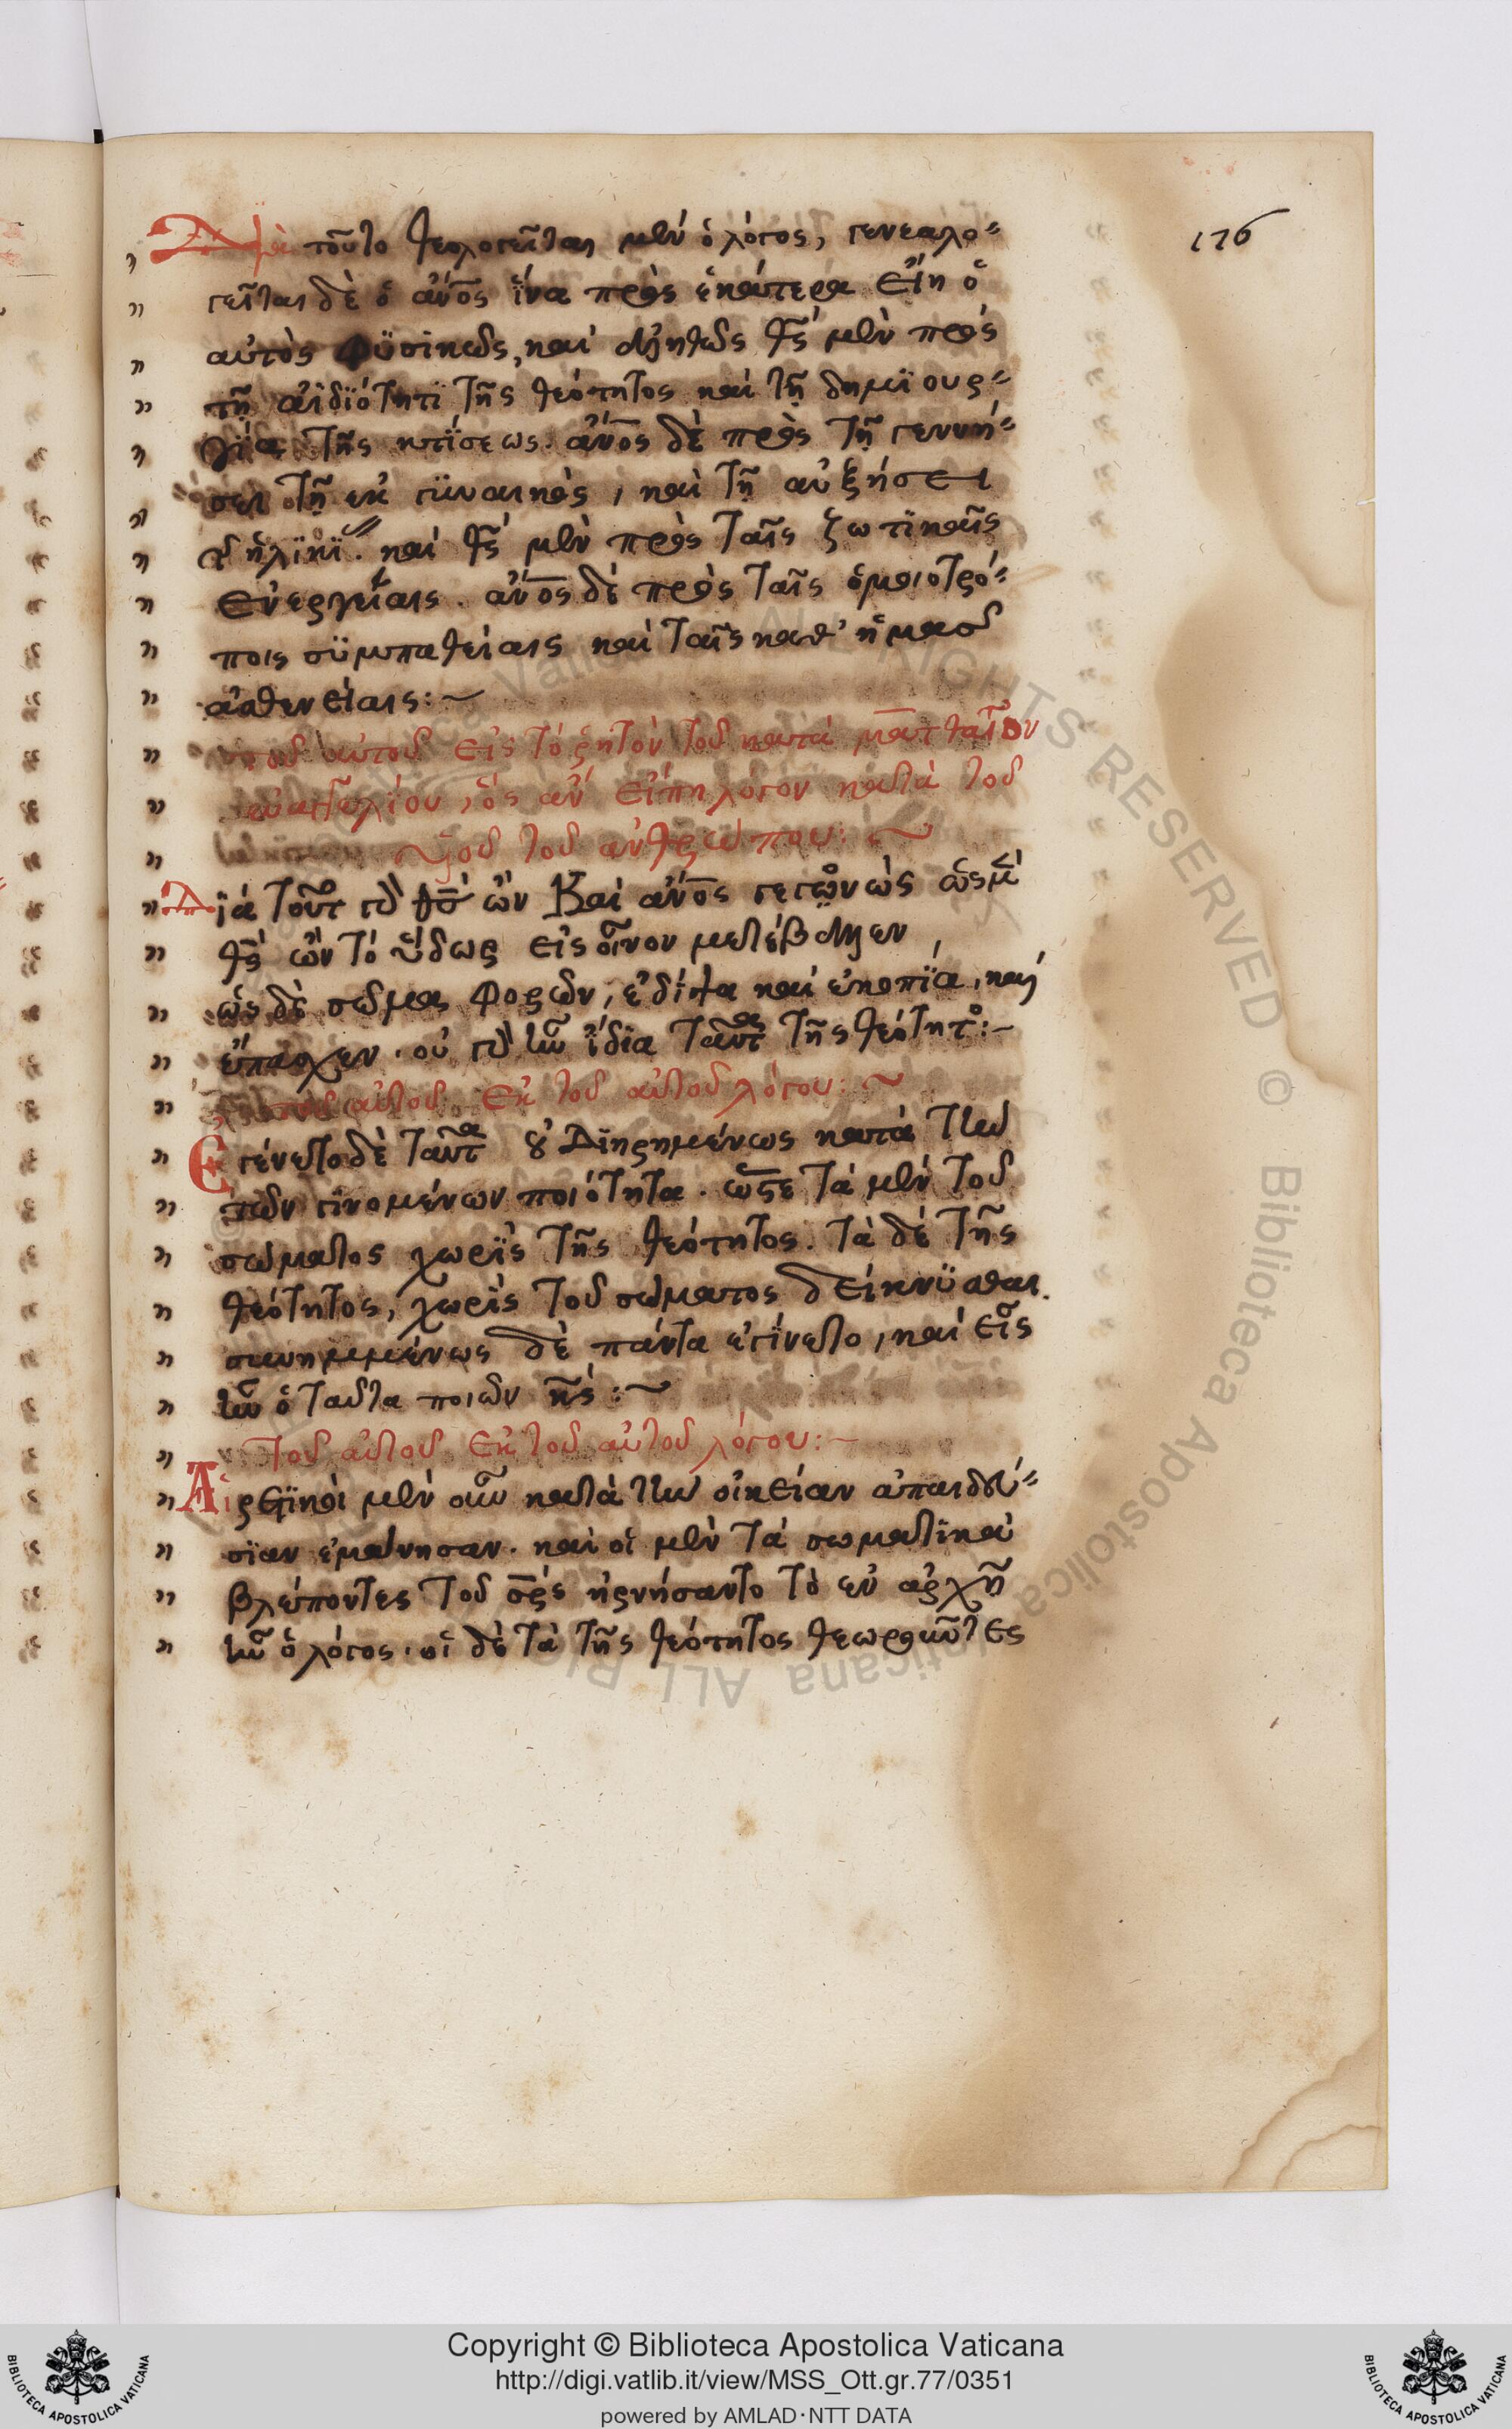 176
Διὰ τοῦτο θεολογεῖται μὲν ὁ λόγος, γενεαλο-
γεῖται δὲ ὁ ἄνος ἵνα πρὸς ἑκάτερα εἴη ὁ
αὐτὸς φϋσικῶς, καὶ ἀληθῶς θς μὲν πρὸς
τῇ αἰδϊότητι τῆς θεότητος καὶ τῇ δημϊουρ-
γία τῆς κτίσεως. ἄνος δὲ πρὸς τῇ γεννή-
σει τῇ ἐκ γϋναικὸς, καὶ τῇ αὐξήσει
τ ἡλϊκϊ. καὶ θς μὲν πρὸς ταῖς ζωτϊκαῖς
ἐνεργείαις. ἄνος δὲ πρὸς ταῖς ὁμοιοτρό-
ποις σϋμπαθείαις καὶ ταῖς καθ' ἡμᾶς
ἀσθενείαις:~
τοῦ αὐτοῦ εἰς τὸ ῥητὸν τοῦ κατὰ ματθαῖον
εὐαγγελίου, ὃς ἂν εἴπῃ λόγον κατὰ τοῦ
ϋἱοῦ τοῦ ἀνθρώπου:~
Διὰ τοῦτ γὰρ θς ὢν καὶ ἄνος γεγονὼς ὡς μ
θς ὢν τὸ ὕδωρ εἰς οἶνον μετέβαλλεν,
ὡς δὲ σῶμα φορῶν, ἐδίψα καὶ ἐκοπία, καὶ
ἔπασχεν. οὐ γὰρ ἦν ἴδια ταῦτα τῆς θεότητο:~
τοῦ αὐτοῦ ἐκ τοῦ αὐτοῦ λόγου:~
Εγένετο δὲ ταῦτα οὐ Διηρημένως κατὰ τὴν
τῶν γινομένων ποιότητα. ὥστε τὰ μὲν τοῦ
σώματος χωρὶς τῆς θεότητος. τὰ δὲ τῆς
θεότητος, χωρὶς τοῦ σώματος δείκνϋσθαι.
συνημμένως δὲ πάντα ἐγίνετο, καὶ εἷς
ἦν ὁ ταῦτα ποιῶν κς:~
τοῦ αὐτοῦ ἐκ τοῦ αὐτοῦ λόγου:~
Αἱρετϊκοὶ μὲν οὖν κατὰ τὴν οἰκείαν ἀπαιδευ-
σίαν ἐμάνησαν. καὶ οἱ μὲν τὰ σωματικὰ
βλέποντες τοῦ σρς ἠρνήσαντο τὸ ἐν ἀρχῇ
ἦν ὁ λόγος. οἱ δὲ τὰ τῆς θεότητος θεωροῦντες
Copyright © Biblioteca Apostolica Vaticana
http://digi.vatlib.it/view/MSS_Ott.gr.77/0351
powered by AMLAD·NTT DATA